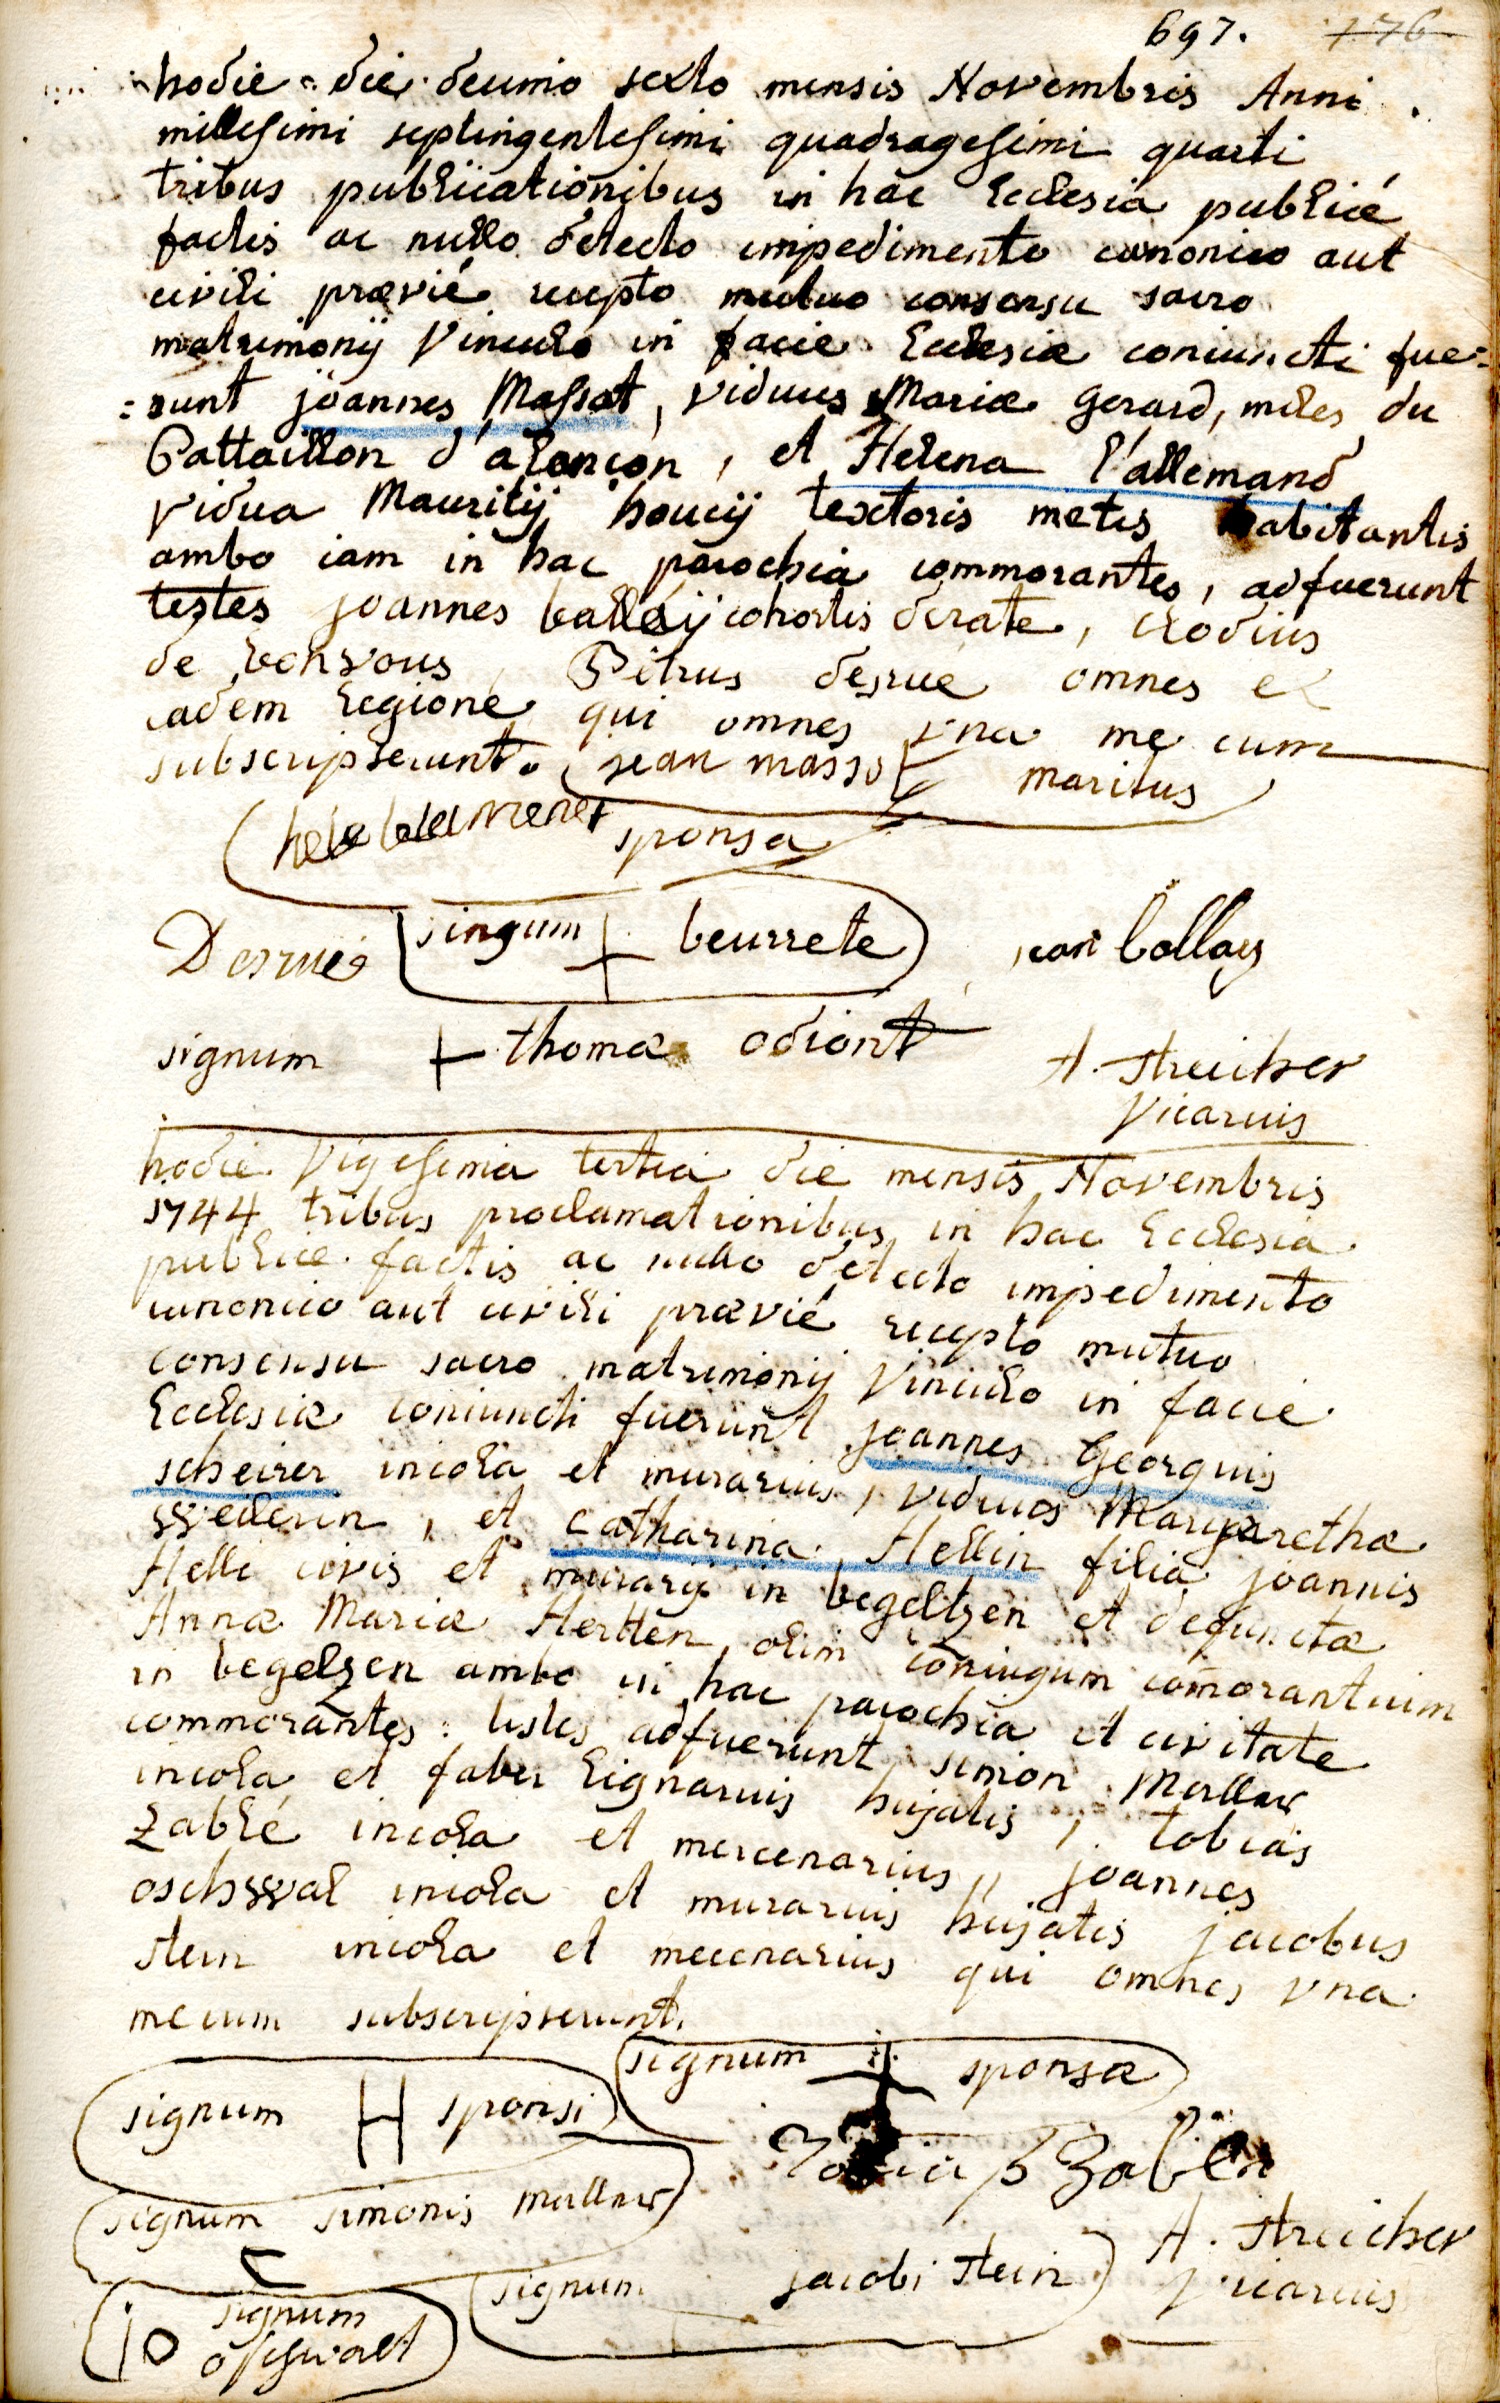 697. 176
hodie die decimo sexto mensis Novembris Anni
millesimi septingentesimi quadragesimi quarti
tribus publicationibus in hac Ecclesia publicé
factis ac nullo detecto impedimento canonico aut
civili prævié recepto mutuo consensu sacro
matrimonij Vinculo in facie Ecclesiæ coniuncti fue=
=runt joannes Massot, viduus Mariæ Gerard, miles du
Battaillon d'alencon, et Helena l'allemand
vidua Mauritij houcij textoris metis habitantis
ambo iam in hac parochia commorantes, adfuerunt
testes joannes balléij cohortis
de Petrus desrue omnes ex
eadem legione qui omnes vna me cum
subscripserunt. jean massot maritus
sponsa
Desrué singum + beurrete jean ballay
signum + thomæ odiont
A. Streicher
Vicarius
hodie Vigesima tertia die mensis Novembris
1744 tribus proclamationibus in hac Ecclesia
publice factis ac nullo detecto impedimento
canonico aut civili prævié recepto mutuo
consensu sacro matrimonij Vinculo in facie
Ecclesiæ coniuncti fuerunt joannes Georgius
scheirer incola et murarius, viduus Margarethæ
et catharina Hellin filia joannis
Helli civis et murarij in begeltzen et defunctæ
Annæ Mariæ Hertten, olim coniugum com̄orantium
in begelzen ambo in hac parochia et civitate
commorantes: testes adfuerunt simon Mullur
incola et faber lignarius hujatis, tobias
Zablé incola et mercenarius, joannes
oschwal incola et murarius hujatis jacobus
stein incola et mecenarius qui omnes vna
mecum subscripserunt.
signum + sponsæ
signum H sponsi
Zablé
signum simonis mullur
A. Streicher
Vicarius
signum jacobi stein
jo signum